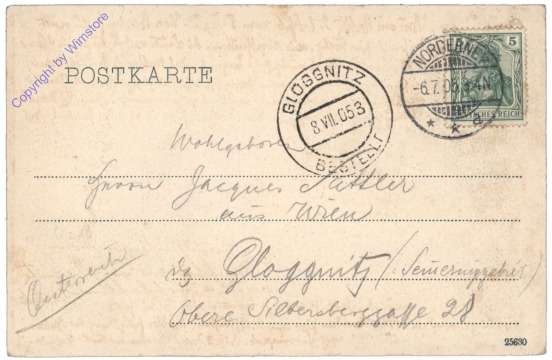 Copyright by Wimstore
POSTKARTE
NORDERNEY
-6.7.05.
a
5
DEUTSCHES REICH
GLOGGNITZ
8 VII. 05 3
BESTELLT
Wohlgeboren
Herrn Jacques Sattler
aus Wien
dz Gloggnitz /
Obere Silbersberggasse 28
Oesterreich
25630